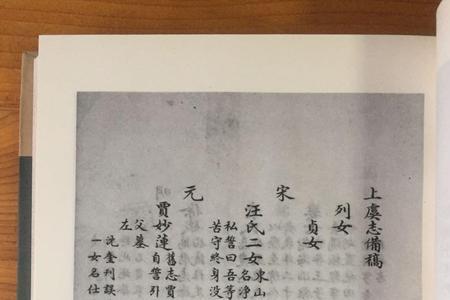 上虞志備稿
列女
貞女
宋
汪氏二女東山
名淨
私誓曰吾等
苦守終身没
元
賈妙蓮舊志賈
自誓引
父墓
左
沈奎刊誤
一女名仕